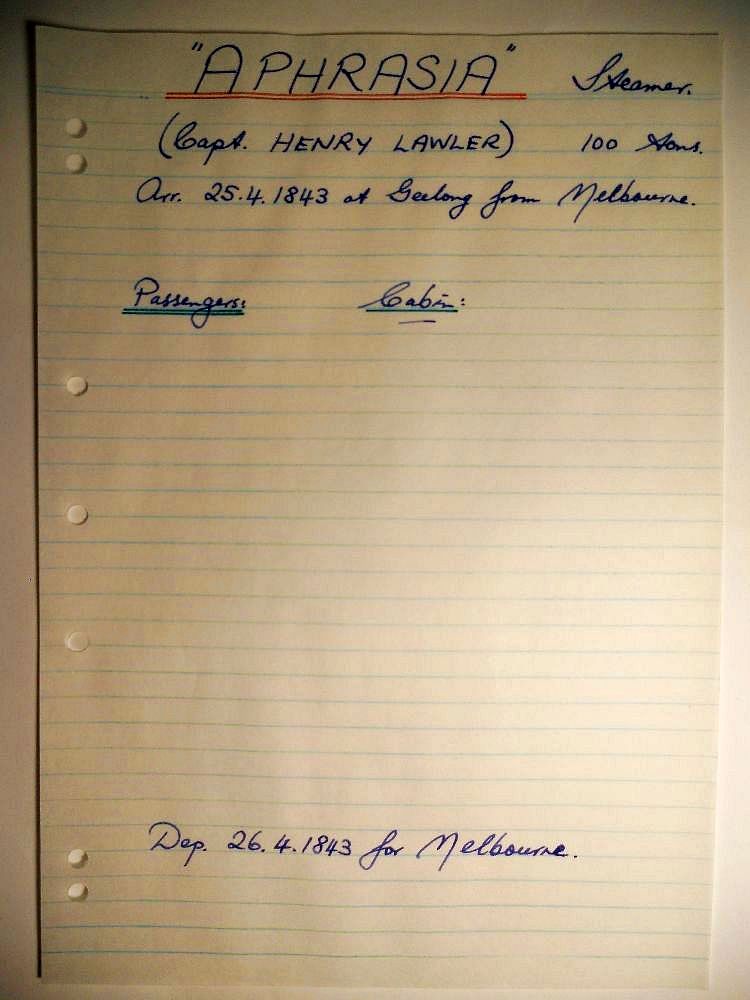 "APHRASIA" Steamer.
(Capt. HENRY LAWLER) 100 tons.
Arr. 25.4.1843 at Geelong from Melbourne.
Passengers: Cabin:
Dep. 26.4.1843 for Melbourne.